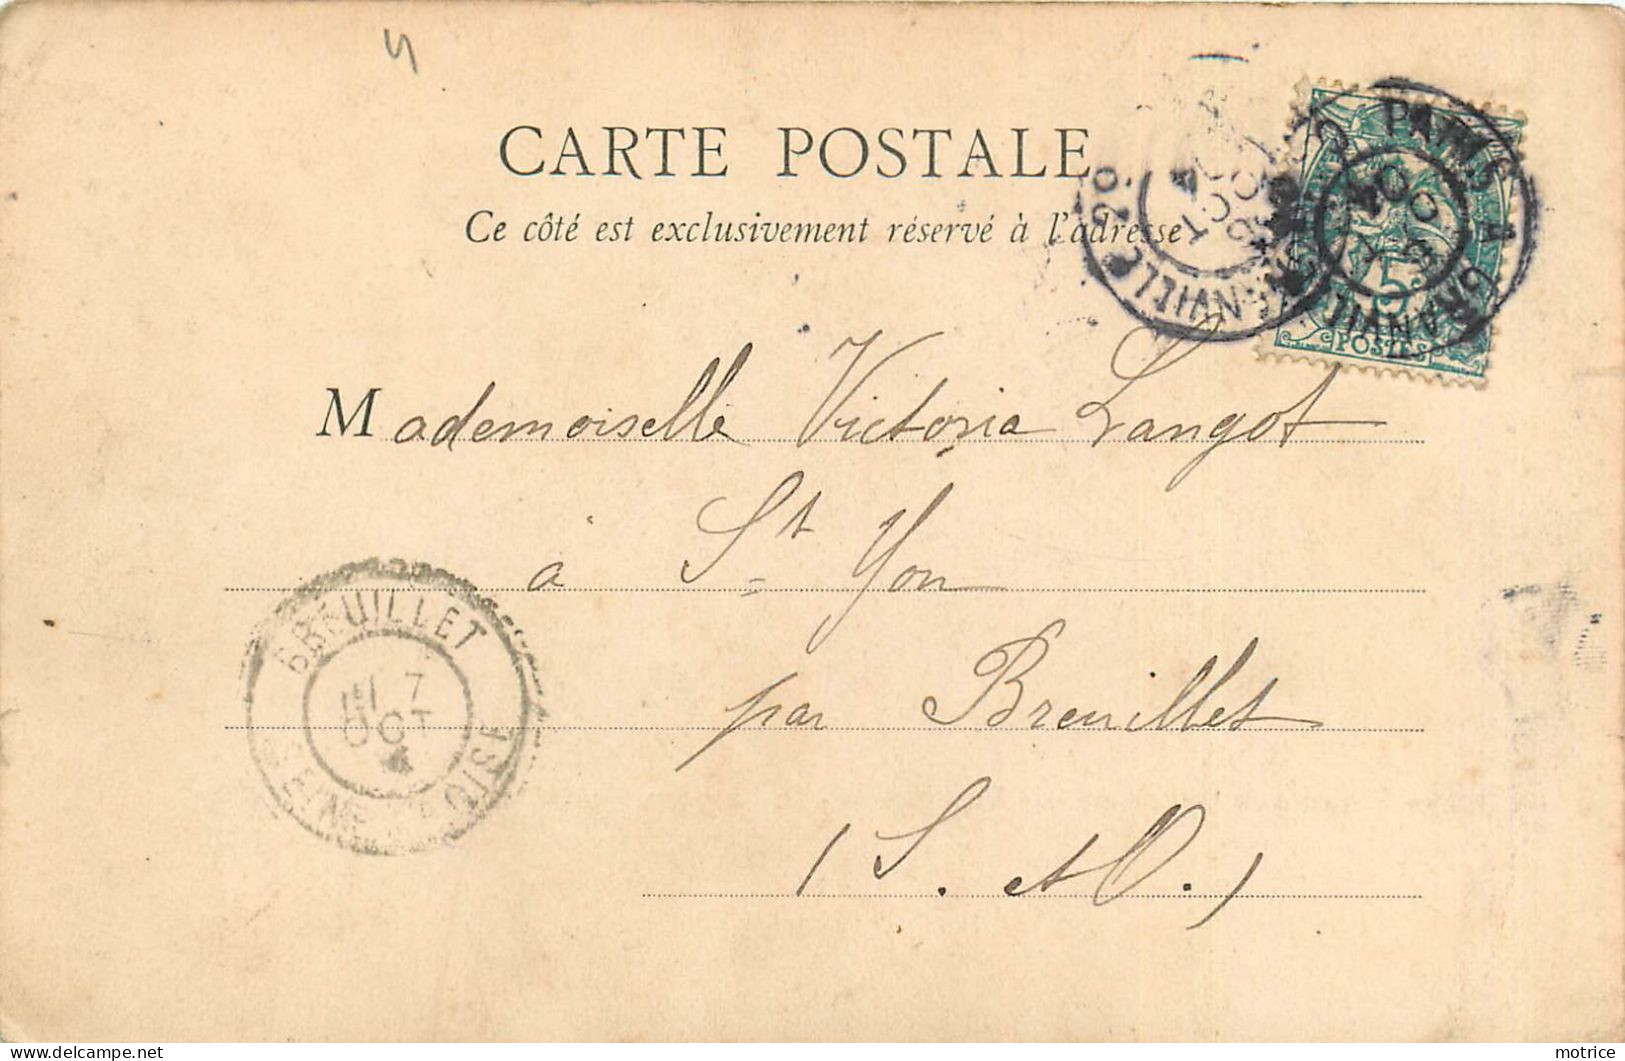 CARTE POSTALE
Ce côté est exclusivement réservé à l'adresse
PARIS
GRANVILLE
5c
POSTES
Mademoiselle Victoria Langot
à St Yon
par Breuillet
(S. et O.)
BREUILLET
7
OCT
SEINE ET OISE
delcampe.net
motrice